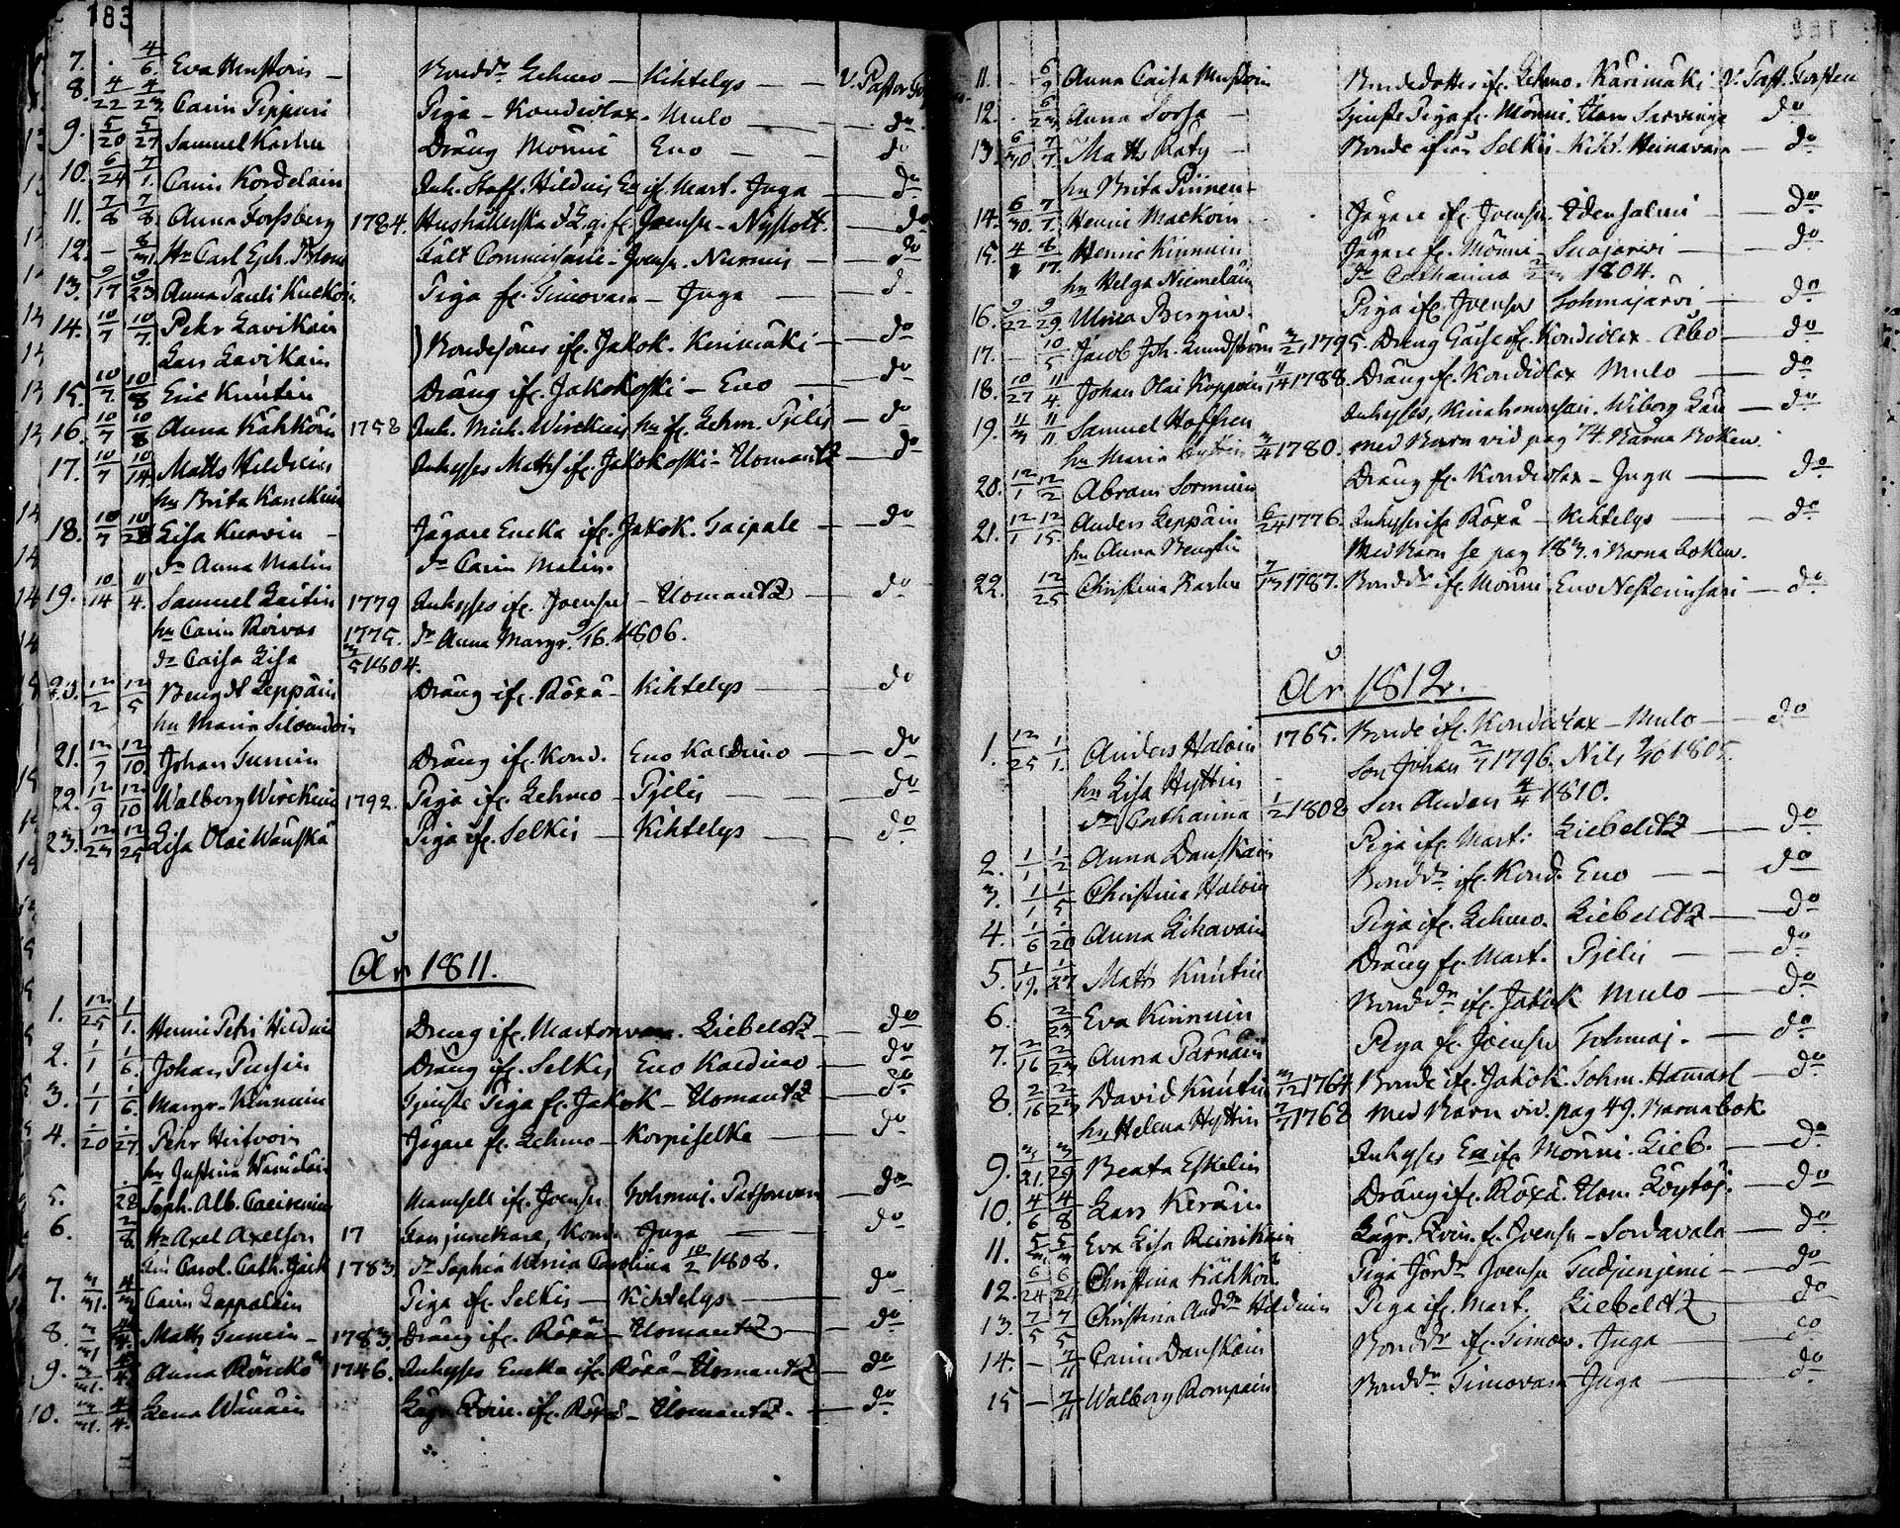 183
7. 4/6. Eva Mustoin — Bondd:r Lehmo — Kihtelys — V. Pastor
8. 4/22 4/23 Carin Pippuri Piga — Kondiolax — Mulo — do
9. 5/20 5/27 Samuel Karhu Dräng Mönni Eno — do
10. 6/24 7/1. Carin Kordelain Inh. Staff. Hildnis En. ifr. Mart. Juga — do
11. 7/8 7/8. Anna Forssberg 1784. Hushållerska ifr. Joensu — Nyslott. — do
12. — 8/31. Hr Carl Eph. Fält Commissarie — Joensu. Nurmis — do
13. 9/17 9/23 Anna Pauli Kuckoin Piga fr. Timovara — Juga — do
14. 10/7 10/7. Pehr Lavikain
Lars Lavikain ) Bondesöner ifr. Jakok. Kerimäki — do
15. 10/7 10/8 Eric Knutin Dräng ifr. Jakokoski — Eno — do
16. 10/7 10/8 Anna Kähköin 1758 Inh. Mich. Wirckins hu ifr. Lehm. Pjelis — do
17. 10/7 10/14. Matts Hildnin Inhyses Matts ifr. Jakokoski — Ilomantz — do
hu Brita Kanckuin
18. 10/7 10/28 Lisa Kurvin — Jägare Encka ifr. Jakok. Taipale — do
dr Anna Malin dr Carin Malin.
19. 10/14 11/4. Samuel Laitin 1779 Inhyses ifr. Joensu — Ilomantz — do
hu Carin Roivas 1775. dr Anna Margr. 9/16. 1806.
dr Caisa Lisa 3/5 1804.
20. 12/2 12/5 Bengdt Leppäin Dräng ifr. Röxä — Kihtelys — do
hu Maria Silvendoin
21. 12/7 12/10. Johan Turunin Dräng ifr. Kond. Eno Kaldimo — do
22. 12/9 12/10 Walborg Wirckuin 1792. Piga ifr. Lehmo — Pjelis — do
23. 12/23 12/25 Lisa Olai Wänskä Piga ifr. Selkis — Kihtelys — do
År 1811.
1. 12/25 1/1. Henric Petri Hildnin Dräng ifr. Martonvara. Liebeldtz — do
2. 1/1 1/6. Johan Pursin Dräng ifr. Selkis Eno Kaldimo — do
3. 1/1 1/6. Margr. Kinnuin Tjenste Piga fr. Jakok — Ilomantz — do
4. 1/20 1/27. Pehr Hirfvoin Jägare fr. Lehmo — Korpiselka — do
hu Justina
5. 28 Soph. Alb. Mamsell ifr. Joensu Tohmaj. — do
6. 2/8. Hr Axel Axelson 17 Fanjunckare Kond. Juga — do
Carol. Cath. Jäck 1783. dr Sophia Ulrica Carolina 10/2 1808.
7. 3/31. 4/3 Carin Lappalain Piga ifr. Selkis — Kihtelys — do
8. 3/31 4/4. Matts Turunin — 1783. Dräng ifr. Röxä — Ilomantz — do
9. 3/31. 4/4. Anna Röncko 1746. Inhyses Encka ifr. Röxä — Ilomantz — do
10. 3/31. 4/4. Lena Wänäin ifr. Röxä — Ilomantz. — do
11. — 6/9 Anna Caisa Mustoin Bondedotter ifr. Lehmo. Kärimäki V. Past. Forsten
12. . 6/23 Anna Sorsa — Tjenste Piga fr. Mönni. Ilom. Sarvinge do
13. 6/30 7/7. Matts Räty — Bonde ifrån Selkis Kiht. Heinavara — do
hu Brita Piinen
14. 6/30. 7/7. Henric Mackoin Jägare ifr. Joensu. Idensalmi — do
15. 4/1 8/17. Henric Kinnuin Jägare fr. Mönni — Suojarvi — do
hu Helga Niemelain dr Catharina 1804.
16. 9/22 9/29. Ulrica Bergin. Piga ifr. Joensu Tohmajärvi — do
17. — 10/5 Jacob Joh. Lundström 1795. Dreng Gåsse ifr. Kondiolax Åbo — do
18. 10/27 11/4. Johan Olai Koppoin 11/14 1788. Dräng ifr. Kondiolax Mulo — do
19. 11/3 11/11 Samuel Hoffren Inhyses, Wiborg Län — do
hu Maria Hyttin 3/4 1780. med Barn vid pag 74. Barna Boken.
20. 12/1 12/2 Abram Sormuin Dräng fr. Kondiolax — Juga — do
21. 12/1 12/15. Anders Leppäin 6/24 1776. Inhyses ifr. Röxä — Kihtelys — do
hu Anna Bengtin Med Barn se pag 183. i Barna Boken.
22. 12/25 Christina Karhu 7/13 1787. Bondd:r ifr. Mönni. Eno Nesterinsari — do
År 1812.
1. 12/25 1/1. Anders Halvin 1765. Bonde ifr. Kondiolax — Mulo — do
hu Lisa Hyttin Son Johan 2/7 1796. Nils 1805.
dr Catharina 1/2 1808 Son Anders 4/4 1810.
2. 1/1 1/2 Anna Danskain Piga ifr. Mart. Liebeldtz — do
3. 1/1 1/5 Christina Halvin Bondd:r ifr. Kond. Eno — do
4. 1/6 1/20 Anna Likavain Piga ifr. Lehmo. Liebeldtz — do
5. 1/19. 1/27 Matts Knutin Dräng fr. Mart. Pjelis — do
6. 2/23 Eva Kinnuin Bondd:r ifr. Jakok Mulo — do
7. 2/16 2/23 Anna Parnain Piga fr. Joensu Tohmaj. — do
8. 2/16 2/23 David Knutin 3/12 1764. Bonde ifr. Jakok. Tohm. — do
hu Helena Hyttin 2/7 1768 Med Barn vid. pag 49. Barnabok
9. 3/21. 3/29 Beata Eskelin Inhyses En. ifr. Mönni. Lieb. — do
10. 4/6 4/8 Lars Keräin Dräng ifr. Röxä. Ilom. — do
11. 5/3 5/3 Eva Lisa Reinikain fr. Joensu — Sordavala — do
12. 6/24 6/24 Christina Kähköi Piga Joensu — do
13. 7/5 7/5 Christina And:dr Hildnin Piga ifr. Mart. Liebeldtz — do
14. — 7/11 Carin Danskain Bondd:r ifr. Timov. Juga — do
15 — 7/11 Walborg Rompain Bondd:r Timovara Juga — do